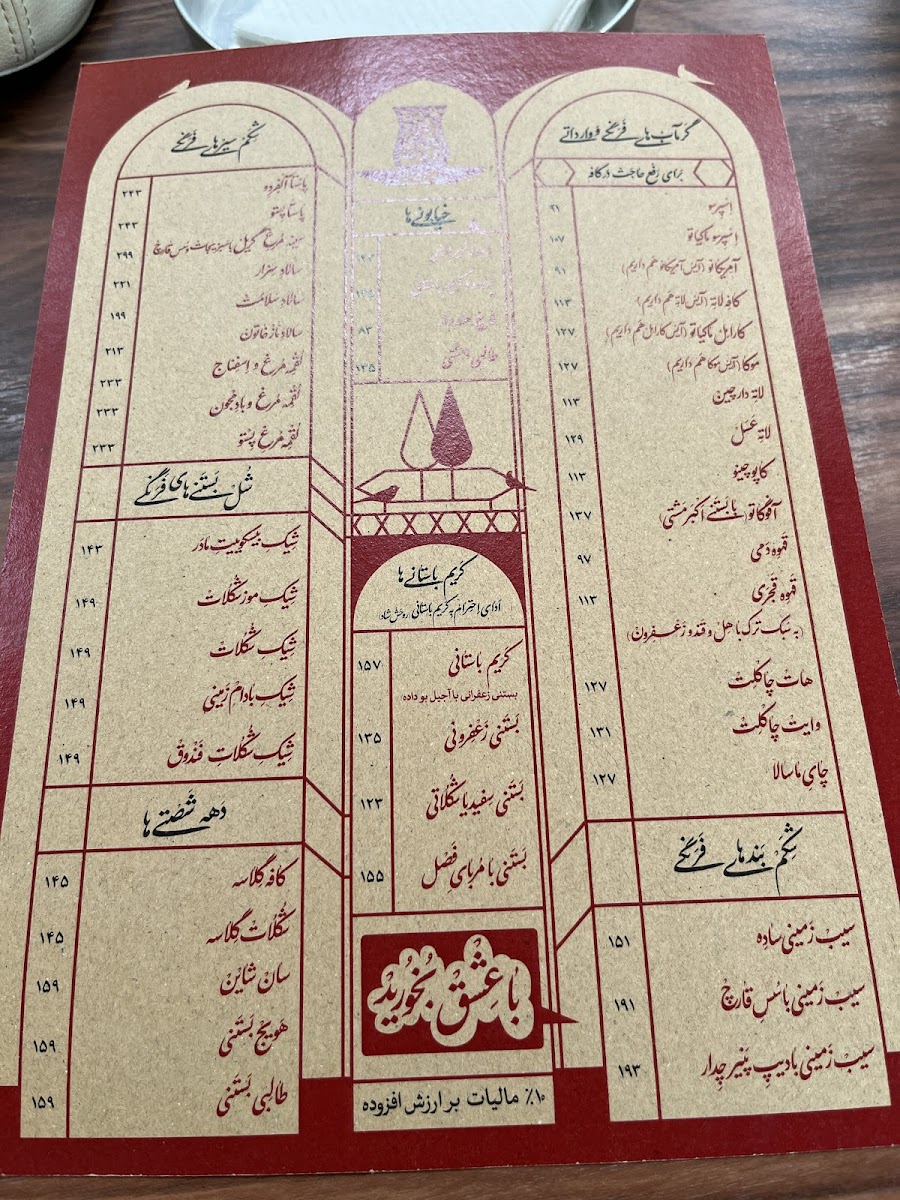 گرمآب های فرنگی و وارداتی
برای رفع حاجت در کافه
اسپرسو ۹۱
اسپرسو ماکیاتو ۱۰۷
آمریکانو (آیس آمریکانو هم داریم) ۹۱
کافه لاته (آیس لاته هم داریم) ۱۱۳
کارامل ماکیاتو (آیس کارامل هم داریم) ۱۲۷
موکا (آیس موکا هم داریم) ۱۲۷
لاته دارچین ۱۱۳
لاته عسل ۱۲۹
کاپوچینو ۱۱۳
آفوگاتو (با بستنی اکبر مشتی) ۱۳۷
قهوه دمی ۹۷
قهوه قجری ۱۱۳
(به سبک ترک با هل و قند و زعفرون)
هات چاکلت ۱۲۷
وایت چاکلت ۱۳۱
چای ماسالا ۱۲۷
شکم بندهای فرنگی
سیب زمینی ساده ۱۵۱
سیب زمینی با سس قارچ ۱۹۱
سیب زمینی با دیپ پنیر چدار ۱۹۳
خیابونی ها
۸۳
طالبی
کریم باستانی ها
ادای احترام به کریم باستانی (روحش شاد)
کریم باستانی ۱۵۷
بستنی زعفرانی با آجیل بو داده
بستنی زعفرونی ۱۳۵
بستنی سفید یا شکلاتی ۱۲۳
بستنی با مربای فصل ۱۵۵
با عشق بخورید
۱۰٪ مالیات بر ارزش افزوده
شکم سیرهای فرنگی
پاستا آلفردو ۲۲۳
پاستا پستو ۲۴۳
سینه مرغ گریل با سبزیجات و سس قارچ ۲۹۹
سالاد سزار ۲۲۱
سالاد سلامت ۱۹۹
سالاد ناز خاتون ۲۱۳
لقمه مرغ و اسفناج ۲۳۳
لقمه مرغ و بادمجون ۲۳۳
لقمه مرغ پستو ۲۳۳
شل بستنی های فرنگی
شیک بیسکوییت مادر ۱۴۳
شیک موز شکلات ۱۴۹
شیک شکلات ۱۴۹
شیک بادام زمینی ۱۴۹
شیک شکلات فندوق ۱۴۹
دهه شصتی ها
کافه گلاسه ۱۴۵
شکلات گلاسه ۱۴۵
سان شاین ۱۵۹
هویج بستنی ۱۵۹
طالبی بستنی ۱۵۹